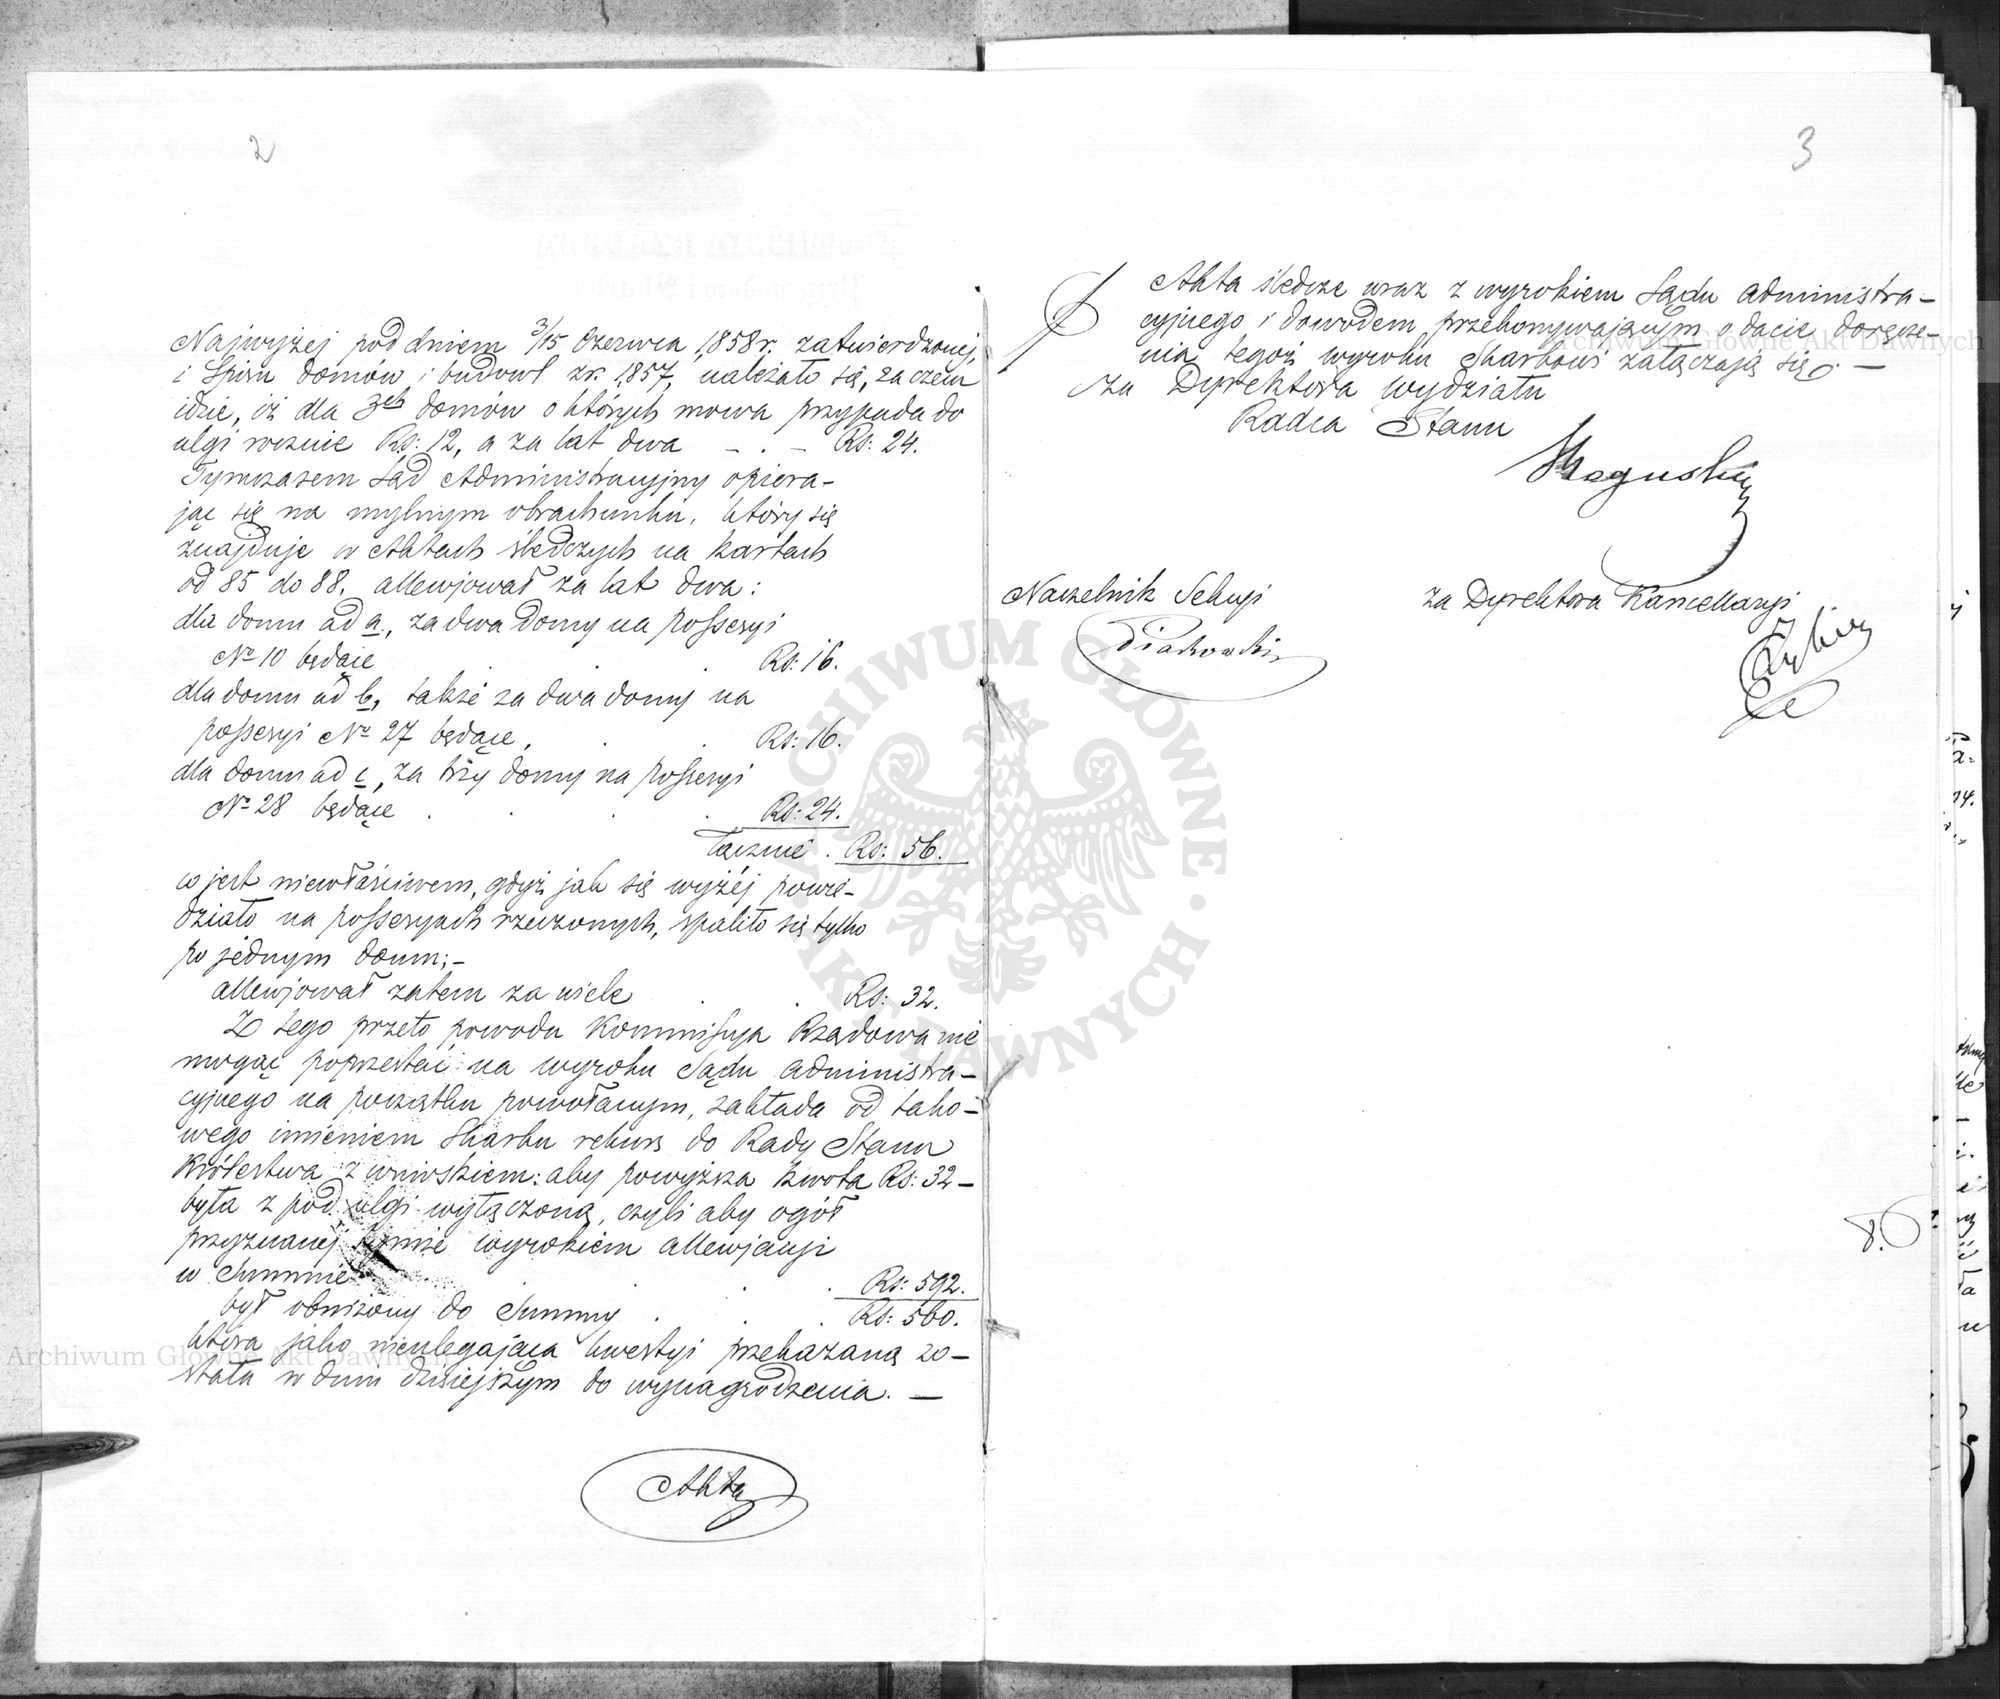 2
Najwyżej pod dniem 3/15 Czerwca 1858 r. zatwierdzonej,
i Spisu domów i budowl z r. 1857, należało się, zaczem
idzie, iż dla 3ch domów o których mowa przypada do
ulgi rocznie Rs: 12, a za lat dwa – . – Rs: 24.
Tymczasem Sąd Administracyjny opiera-
jąc się na mylnym obrachunku, który się
znajduje w Aktach śledczych na kartach
od 85 do 88. allewjował za lat dwa:
dla domu ad a., za dwa domy na possesyi
No 10 będące . . Rs: 16.
dla domu ad b, także za dwa domy na
possesyi No 27 będące, . . Rs: 16.
dla domu ad c, za trzy domy na possesyi
No 28 będące . . . . Rs: 24.
łącznie . Rs: 56.
co jest niewłaściwem, gdyż jak się wyżéj powie-
działo na possesyach rzeczonych, spaliło się tylko
po jednym domu;-
allewjował zatem za wiele . . Rs: 32.
Z tego przeto powodu Kommissya Rządowa nie
mogąc poprzestać na wyroku Sądu administra-
cyjnego na początku powołanym, zakłada od tako-
wego imieniem Skarbu rekurs do Rady Stanu
Królestwa z wnioskiem: aby powyższa kwota Rs: 32-
była z pod ulgi wyłączoną, czyli aby ogół
przyznanej tymże wyrokiem allewjacyi
w Summie . . . Rs: 592.
był obniżony do Summy . . . Rs: 560.
która jako nieulegająca kwestyi przekazaną zo-
stała w dniu dzisiejszym do wynagrodzenia. —
Akta
3
Akta śledcze wraz z wyrokiem Sądu administra-
cyjnego i dowodem przekonywającym o dacie doręcze-
nia tegoż wyroku Skarbowi załączają się. —
za Dyrektora Wydziału
Radca Stanu
Naczelnik Sekcyi
za Dyrektora Kancellaryi
8.
ARCHIWUM GŁÓWNE AKT DAWNYCH
Archiwum Główne Akt Dawnych
Archiwum Główne Akt Dawnych